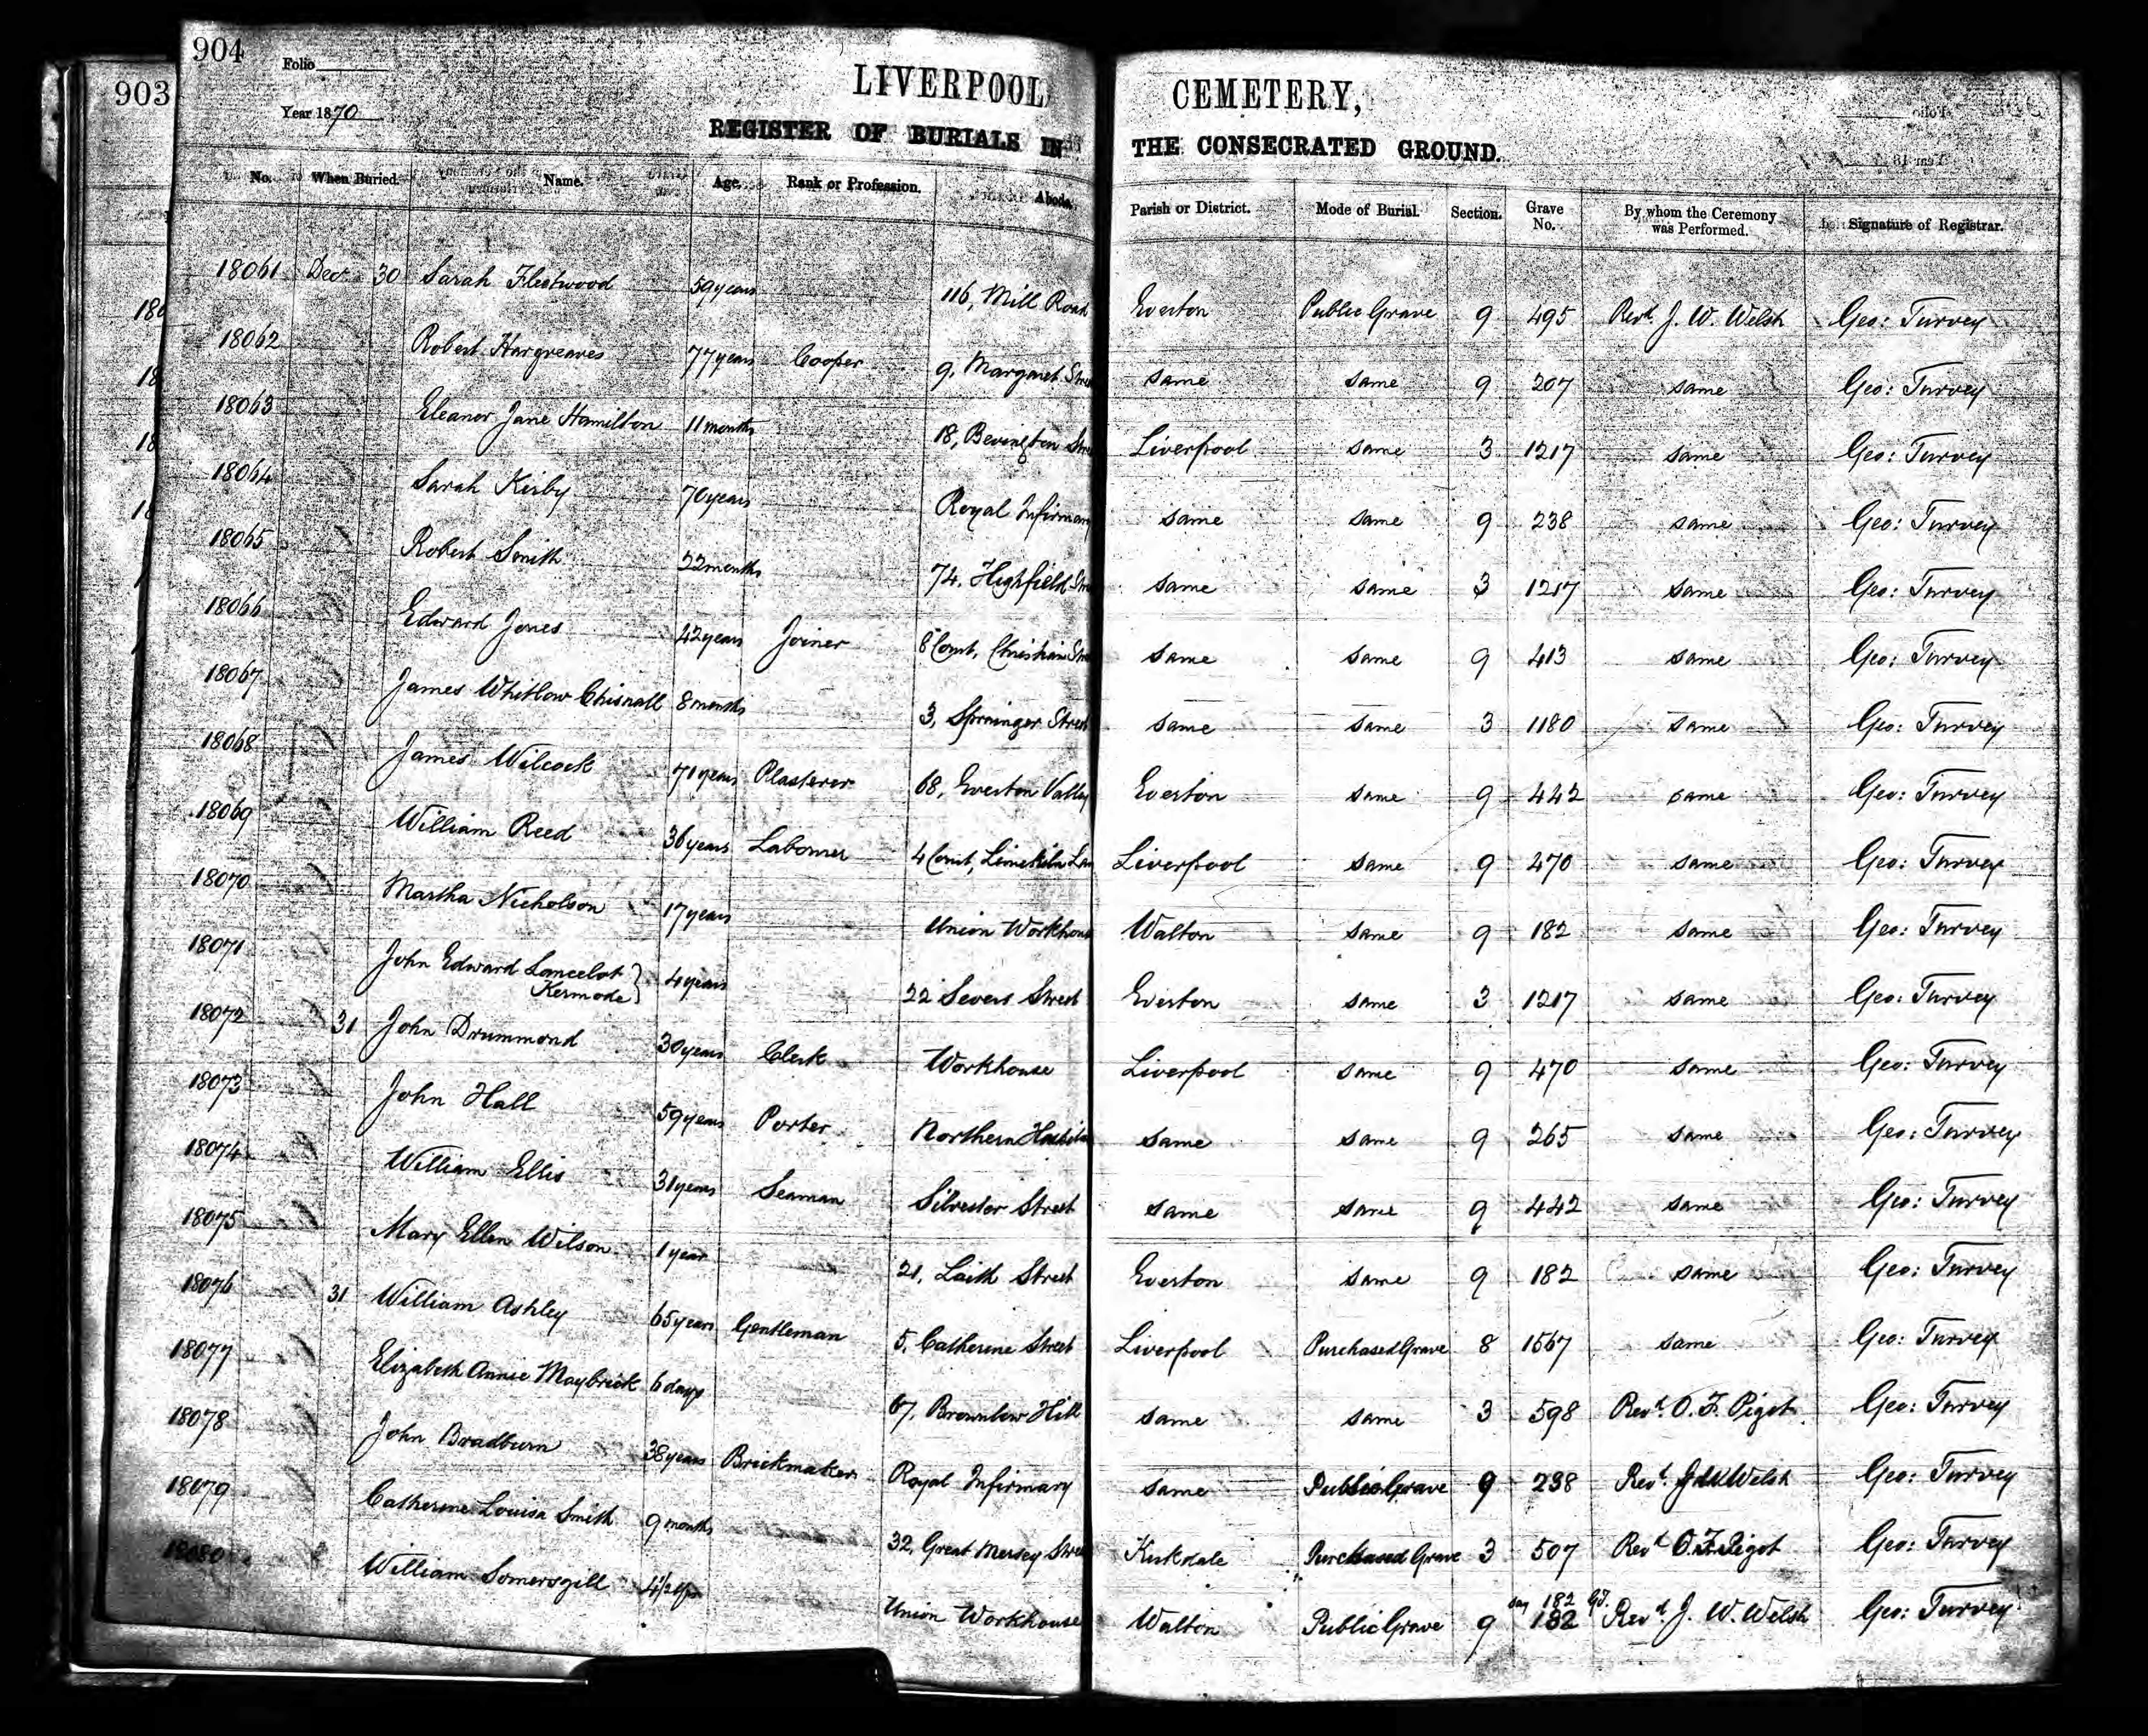 904
903
Folio
Year 1870
LIVERPOOL CEMETERY,
REGISTER OF BURIALS IN THE CONSECRATED GROUND.
No. When Buried. Name. Age. Rank or Profession. Abode. Parish or District. Mode of Burial. Section. Grave No. By whom the Ceremony was Performed. Signature of Registrar.
18061 Dec 30 Sarah Fleetwood 59 years 116, Mill Road Everton Public Grave 9 495 Revd. J. W. Welsh Geo: Turvey
18062 Robert Hargreaves 77 years Cooper 9, Margaret Stre same same 9 207 same Geo: Turvey
18063 Eleanor Jane Hamilton 11 months 18, Bevington Stre Liverpool same 3 1217 same Geo: Turvey
18064 Sarah Kirby 70 years Royal Infirmary same same 9 238 same Geo: Turvey
18065 Robert Smith 22 months 74, Highfield Stre same same 3 1217 same Geo: Turvey
18066 Edward Jones 42 years Joiner 8 Court, Christian Stre same same 9 413 same Geo: Turvey
18067 James Whitlow Chisnall 8 months 3, Sprainger Street same same 3 1180 same Geo: Turvey
18068 James Wilcock 71 years Plasterer 68, Everton Valley Everton same 9 442 same Geo: Turvey
18069 William Reed 36 years Laborer 4 Court, Limekiln Lan Liverpool same 9 470 same Geo: Turvey
18070 Martha Nicholson 17 years Union Workhouse Walton same 9 182 same Geo: Turvey
18071 John Edward Lancelot Kermode} 4 years 22 Severs Street Everton same 3 1217 same Geo: Turvey
18072 31 John Drummond 30 years Clerk Workhouse Liverpool same 9 470 same Geo: Turvey
18073 John Hall 59 years Porter Northern Hospital same same 9 265 same Geo: Turvey
18074 William Ellis 31 years Seaman Silvester Street same same 9 442 same Geo: Turvey
18075 Mary Ellen Wilson 1 year 21, Laith Street Everton same 9 182 same Geo: Turvey
18076 31 William Ashley 65 years Gentleman 5, Catherine Street Liverpool Purchased Grave 8 1567 same Geo: Turvey
18077 Elizabeth Annie Maybrick 6 days 67, Brownlow Hill same same 3 598 Revd. O. F. Pigot Geo: Turvey
18078 John Bradburn 38 years Brickmaker Royal Infirmary same Public Grave 9 238 Revd. J W Welsh Geo: Turvey
18079 Catherine Louisa Smith 9 months 32, Great Mersey Stree Kirkdale Purchased Grave 3 507 Revd O. F. Pigot Geo: Turvey
18080 William Somersgill 4 1/2 Union Workhouse Walton Public Grave 9 182 182 G.T. Revd. J. W. Welsh Geo: Turvey